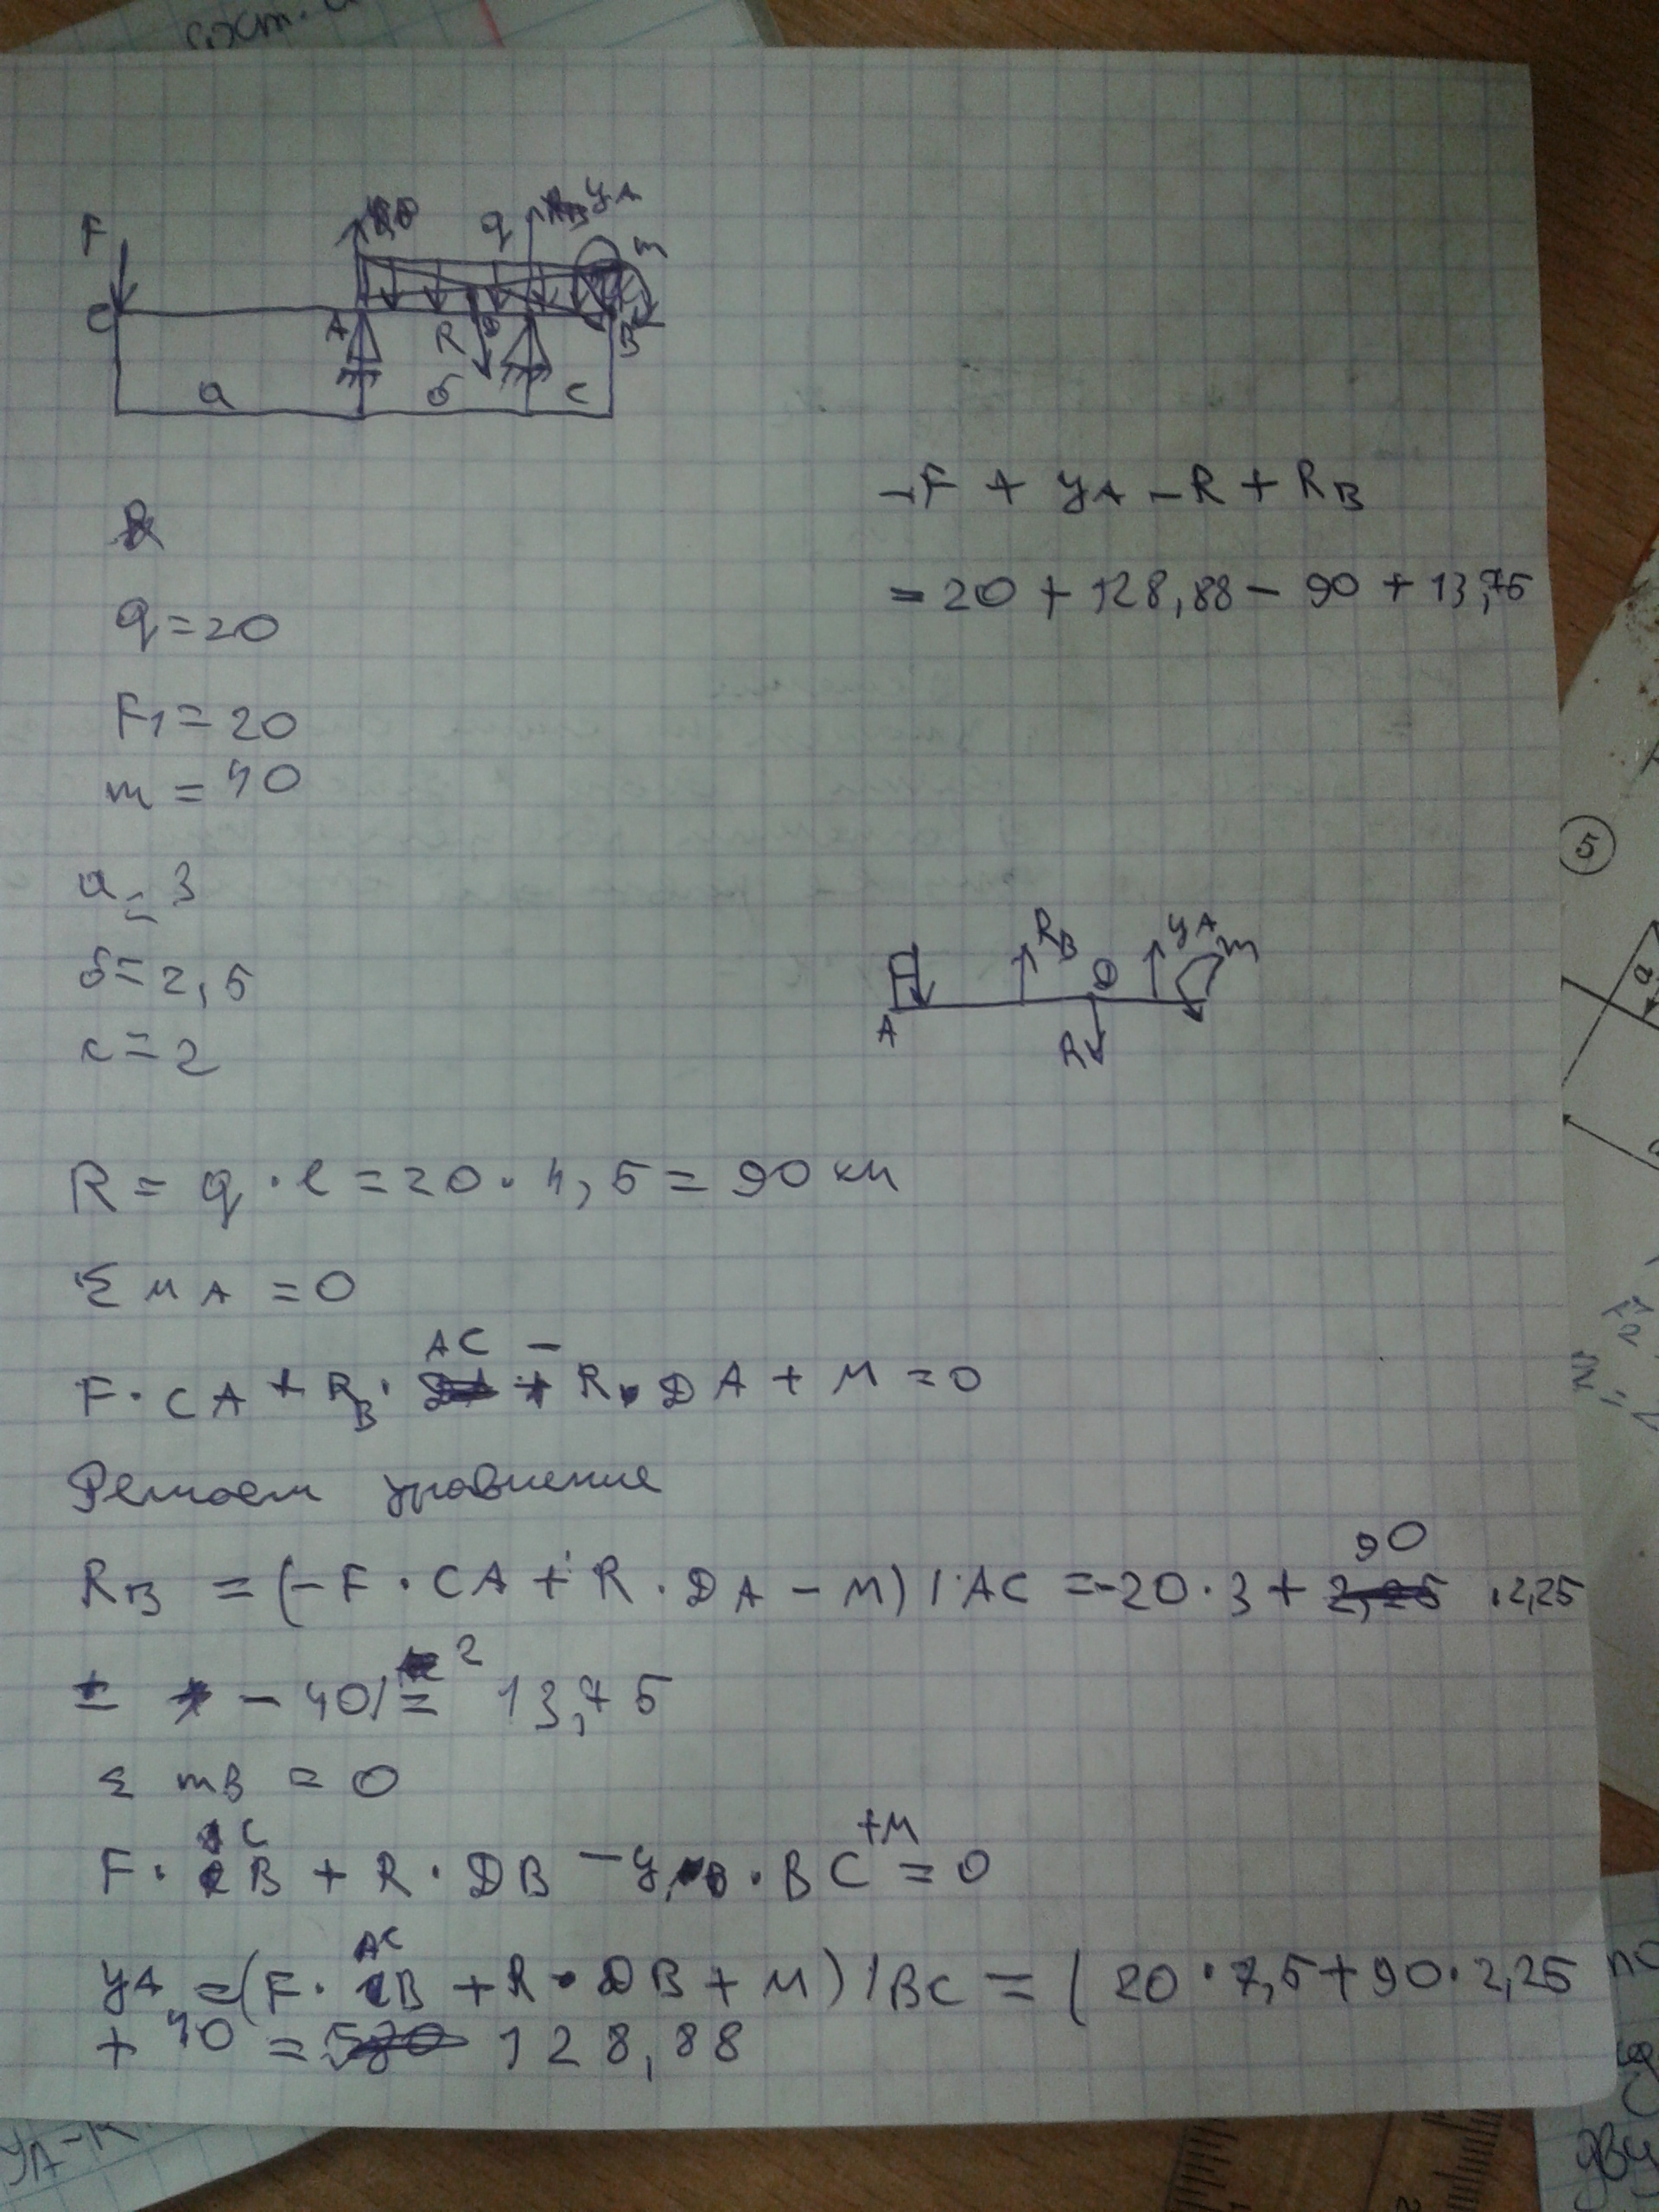 сохт.
F
q
yA
m
C
A
R
D
B
a
б
c
-F + yA - R + RB
= 20 + 128,88 - 90 + 13,75
q = 20
F1 = 20
m = 40
a = 3
б = 2,5
c = 2
F
RB
D
yA
m
A
R
R = q · l = 20 · 4,5 = 90 кн
Σ M A = 0
AC -
F · CA + RB · R · DA + M = 0
Решаем уравнение
90
RB = (-F · CA + R · DA - M) / AC = -20 · 3 + · 2,25
2
- 40/ = 13,75
Σ mB = 0
C +M
F · B + R · DB - y · BC = 0
AC
yA = (F · B + R · DB + M) / BC = (20 · 7,5 + 90 · 2,25
+ 40 = 128,88
5
a
F
2
yA - R
2